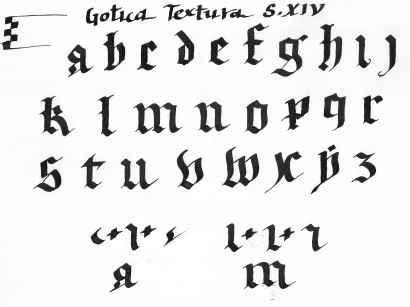 Gotica Textura S.XIV
a b c d e f g h i j
k l m n o p q r
s t u v w x ÿ z
a m